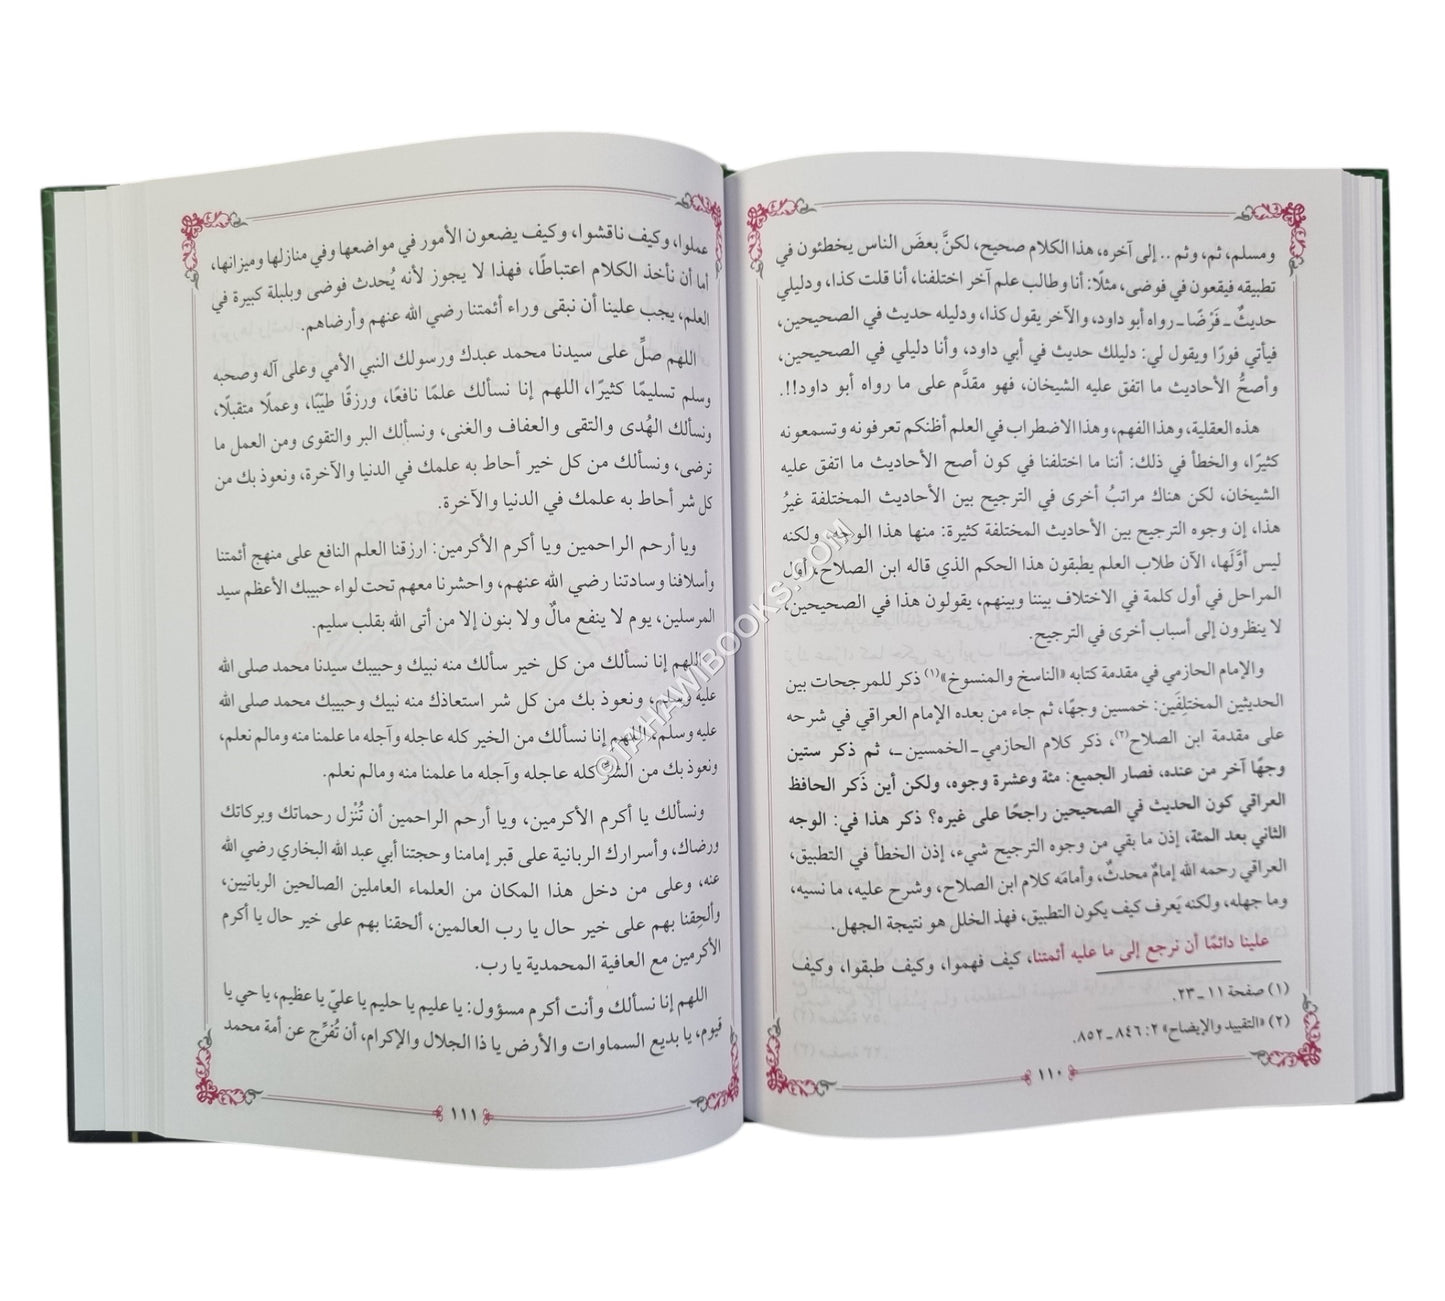 ومسلم، ثم، وثم .. إلى آخره، هذا الكلام صحيح، لكنَّ بعضَ الناس يخطئون في
تطبيقه فيقعون في فوضى، مثلًا: أنا وطالب علم آخر اختلفنا، أنا قلت كذا، ودليلي
حديثٌ ـ فَرْضًا ـ رواه أبو داود، والآخر يقول كذا، ودليله حديث في الصحيحين،
فيأتي فورًا ويقول لي: دليلك حديث في أبي داود، وأنا دليلي في الصحيحين،
وأصحُّ الأحاديث ما اتفق عليه الشيخان، فهو مقدَّم على ما رواه أبو داود!!.
هذه العقلية، وهذا الفهم، وهذا الاضطراب في العلم أظنكم تعرفونه وتسمعونه
كثيرًا، والخطأ في ذلك: أننا ما اختلفنا في كون أصح الأحاديث ما اتفق عليه
الشيخان، لكن هناك مراتبُ أخرى في الترجيح بين الأحاديث المختلفة غيرُ
هذا، إن وجوه الترجيح بين الأحاديث المختلفة كثيرة: منها هذا الوجه، ولكنه
ليس أوَّلَها، الآن طلاب العلم يطبقون هذا الحكم الذي قاله ابن الصلاح، أول
المراحل في أول كلمة في الاختلاف بيننا وبينهم، يقولون هذا في الصحيحين،
لا ينظرون إلى أسباب أخرى في الترجيح.
والإمام الحازمي في مقدمة كتابه «الناسخ والمنسوخ»(١) ذكر للمرجحات بين
الحديثين المختلِفَين: خمسين وجهًا، ثم جاء من بعده الإمام العراقي في شرحه
على مقدمة ابن الصلاح(٢)، ذكر كلام الحازمي ـ الخمسين ـ، ثم ذكر ستين
وجهًا آخر من عنده، فصار الجميع: مئة وعشرة وجوه، ولكن أين ذَكر الحافظ
العراقي كون الحديث في الصحيحين راجحًا على غيره؟ ذكر هذا في: الوجه
الثاني بعد المئة، إذن ما بقي من وجوه الترجيح شيء، إذن الخطأ في التطبيق،
العراقي رحمه الله إمامٌ محدثٌ، وأمامَه كلام ابن الصلاح، وشرح عليه، ما نسيه،
وما جهله، ولكنه يَعرف كيف يكون التطبيق، فهذ الخلل هو نتيجة الجهل.
علينا دائمًا أن نرجع إلى ما عليه أئمتنا، كيف فهموا، وكيف طبقوا، وكيف
(١) صفحة ١١ ـ ٢٣.
(٢) «التقييد والإيضاح» ٢: ٨٤٦ ـ ٨٥٢.
١١٠
عملوا، وكيف ناقشوا، وكيف يضعون الأمور في مواضعها وفي منازلها وميزانها،
أما أن نأخذ الكلام اعتباطًا، فهذا لا يجوز لأنه يُحدث فوضى وبلبلة كبيرة في
العلم، يجب علينا أن نبقى وراء أئمتنا رضي الله عنهم وأرضاهم.
اللهم صلِّ على سيدنا محمد عبدك ورسولك النبي الأمي وعلى آله وصحبه
وسلم تسليمًا كثيرًا، اللهم إنا نسألك علمًا نافعًا، ورزقًا طيِّبًا، وعملًا متقبلًا،
ونسألك الهُدى والتقى والعفاف والغنى، ونسألك البر والتقوى ومن العمل ما
ترضى، ونسألك من كل خير أحاط به علمك في الدنيا والآخرة، ونعوذ بك من
كل شر أحاط به علمك في الدنيا والآخرة.
ويا أرحم الراحمين ويا أكرم الأكرمين: ارزقنا العلم النافع على منهج أئمتنا
وأسلافنا وسادتنا رضي الله عنهم، واحشرنا معهم تحت لواء حبيبك الأعظم سيد
المرسلين، يوم لا ينفع مالٌ ولا بنون إلا من أتى الله بقلب سليم.
اللهم إنا نسألك من كل خير سألك منه نبيك وحبيبك سيدنا محمد صلى الله
عليه وسلم، ونعوذ بك من كل شر استعاذك منه نبيك وحبيبك محمد صلى الله
عليه وسلم، اللهم إنا نسألك من الخير كله عاجله وآجله ما علمنا منه ومالم نعلم،
ونعوذ بك من الشر كله عاجله وآجله ما علمنا منه ومالم نعلم.
ونسألك يا أكرم الأكرمين، ويا أرحم الراحمين أن تُنْزل رحماتك وبركاتك
ورضاك، وأسرارك الربانية على قبر إمامنا وحجتنا أبي عبد الله البخاري رضي الله
عنه، وعلى من دخل هذا المكان من العلماء العاملين الصالحين الربانيين،
وألحِقنا بهم على خير حال يا رب العالمين، ألحقنا بهم على خير حال يا أكرم
الأكرمين مع العافية المحمدية يا رب.
اللهم إنا نسألك وأنت أكرم مسؤول: يا عليم يا حليم يا عليّ يا عظيم، يا حي يا
قيوم، يا بديع السماوات والأرض يا ذا الجلال والإكرام، أن تُفرِّج عن أمة محمد
١١١
©JAHAWIBOOKS.COM